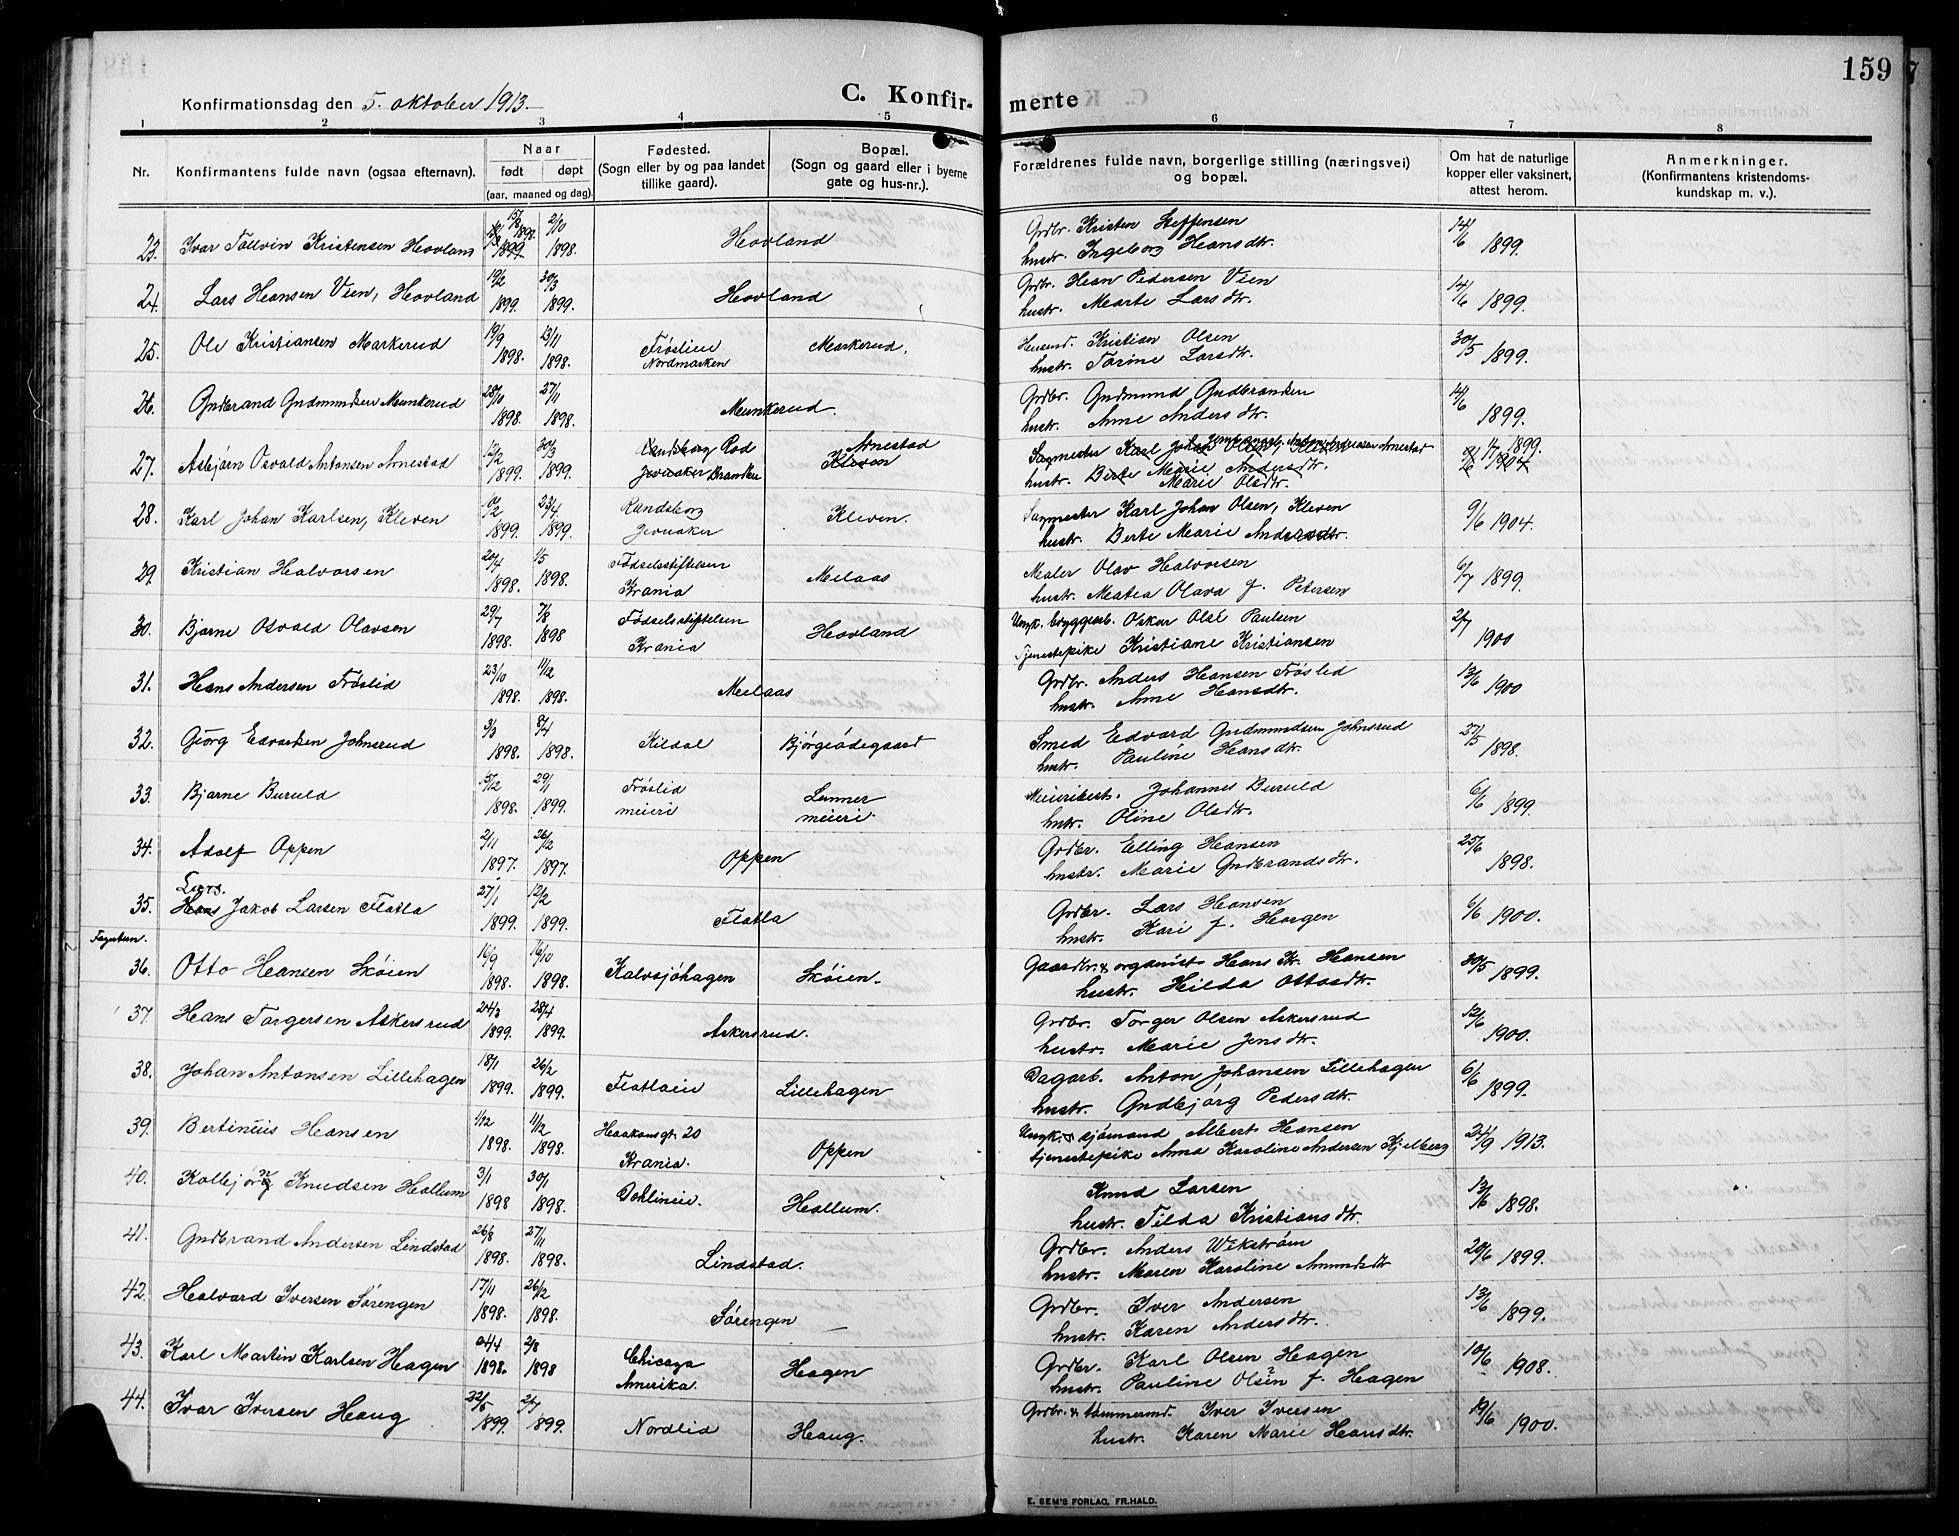 159
Konfirmationsdag den 5. oktober 1913.
C. Konfir- merte
1 2 3 4 5 6 7 8
Nr.
Konfirmantens fulde navn (ogsaa efternavn).
Naar
født døpt
(aar, maaned og dag).
Fødested.
(Sogn eller by og paa landet
tillike gaard).
Bopæl.
(Sogn og gaard eller i byerne
gate og hus-nr.).
Forældrenes fulde navn, borgerlige stilling (næringsvei)
og bopæl.
Om hat de naturlige
kopper eller vaksinert,
attest herom.
Anmerkninger.
(Konfirmantens kristendoms-
kundskap m. v.).
23. Ivar Tollvin Kristensen Hovland 1898. 2/10 1898. Hovland Grdbr. Kristen Steffensen 14/6 1899.
hustr. Ingeborg Hansdtr.
24. Lars Hansen Vien, Hovland 19/2 1899. 30/3 1899. Hovland Grdbr. Han Pedersen Vien 14/6 1899.
hustr. Marte Larsdtr.
25. Ole Kristiansen Markerud 19/9 1898. 13/11 1898. Frøslien Nordmarken Markerud. Husmd. Kristian Olsen 30/5 1899.
hustr. Torine Larsdtr.
26. Gudbrand Gudmundsen Munkerud 28/10 1898. 27/11 1898. Munkerud. Grdbr. Gudmund Gudbrandsen 14/6 1899.
hustr. Anne Andersdtr.
27. Asbjørn Osvald Antonsen Arnestad 12/2 1899. 30/3 1899. Randsborg Rod Jevnaker Branden Arnestad Kleven Sagmester Karl Johan Olsen, Kleven Arnestad 1899. 1904.
hustr. Berte Marie Andersdtr.
Marie Olsdtr.
28. Karl Johan Karlsen, Kleven 1899. 23/4 1899. Randsborg Jevnaker Kleven. Sagmester Karl Johan Olsen, Kleven 9/6 1904.
hustr. Berte Marie Andersdtr.
29. Kristian Halvorsen 20/4 1898. 1/5 1898. Fødselsstiftelsen Krania Melaas Maler Olav Halvorsen 6/7 1899.
hustr. Matea Olava f. Petersen
30. Bjarne Osvald Olavsen 29/7 1898. 7/8 1898 Fødselsstiftelsen Krania Hovland Ungk. bryggearb. Oskar Olsé Paulsen 2/7 1900
Tjenestepike Kristiane Kristiansen
31. Hans Andersen Frøslid 23/10 1898. 11/12 1898. Melaas Grdbr. Anders Hansen Frøslid 13/6 1900
hustr. Anne Hansdtr.
32. Georg Edvardsen Johnsrud 3/3 1898. 8/4 1898. Kildal Bjørgeødegaard Smed Edvard Gudmundsen Johnsrud 27/5 1898.
hustr. Pauline Hansdtr.
33. Bjarne Buruld 15/12 1898. 29/1 1899. Frøslid meieri Lunner meieri. Meieribest. Johannes Buruld 6/6 1899.
hustr. Oline Olsdtr.
34. Adolf Oppen 2/11 1897. 26/12 1897. Oppen Grdbr. Elling Hansen 25/6 1898.
hustr. Marie Gudbrandsdtr.
Lars.
35. Hans Jakob Larsen Flatla 27/1 1899. 12/2 1899. Flatla Grdbr. Lars Hansen 6/6 1900.
hustr. Kari f. Hagen
36. Otto Hansen Skøien 16/9 1898. 16/10 1898. Kalvsjøhagen Skøien. Gaardbr. & organist Hans Kr. Hansen 30/5 1899.
hustr. Hilda Ottosdtr.
37. Hans Torgersen Askersrud 24/3 1899. 28/4 1899. Askersrud. Grdbr. Torger Olsen Askersrud 12/6 1900.
hustr. Marie Jensdtr.
38. Johan Antonsen Lillehagen 18/1 1899. 26/2 1899. Flatlaeie Lillehagen Dagarb. Anton Johansen Lillehagen 6/6 1899.
hustr. Gudbjørg Pedersdtr.
39. Bertinius Hansen 1/12 1898. 11/12 1898. Haakonsgt. 20 Krania. Oppen Ungk. & sjømand Albert Hansen 24/9 1913.
tjenestepike Anna Karoline Andersen Kjelberg
40. Kolbjørn Knudsen Hallum 3/1 1898 30/1 1898. Dohlineie. Hallum. Knud Larsen 13/6 1898.
hustr. Tilda Kristiansdtr.
41. Gudbrand Andersen Lindstad 26/8 1898. 27/11 1898. Lindstad. Grdbr. Anders Wikstrøm 20/6 1899.
hustr. Maren Karoline Amundsdtr
42. Halvard Iversen Sørengen 17/11 1898. 26/12 1898. Sørengen Grdbr. Iver Andersen 13/6 1899.
hustr. Karen Andersdtr.
43. Karl Martin Karlsen Hagen 24/4 1898. 2/8 1898 Chicago Amerika. Hagen Grdbr. Karl Olsen Hagen 10/6 1908.
hustr. Pauline Olsen f. Hagen
44. Ivar Iversen Haug 22/5 1899. 2/7 1899. Nordlid Haug. Grdbr. & tømmermd. Iver Iversen 19/6 1900.
hustr. Karen Marie Hansdtr.
E. SEM'S FORLAG, FR.HALD.